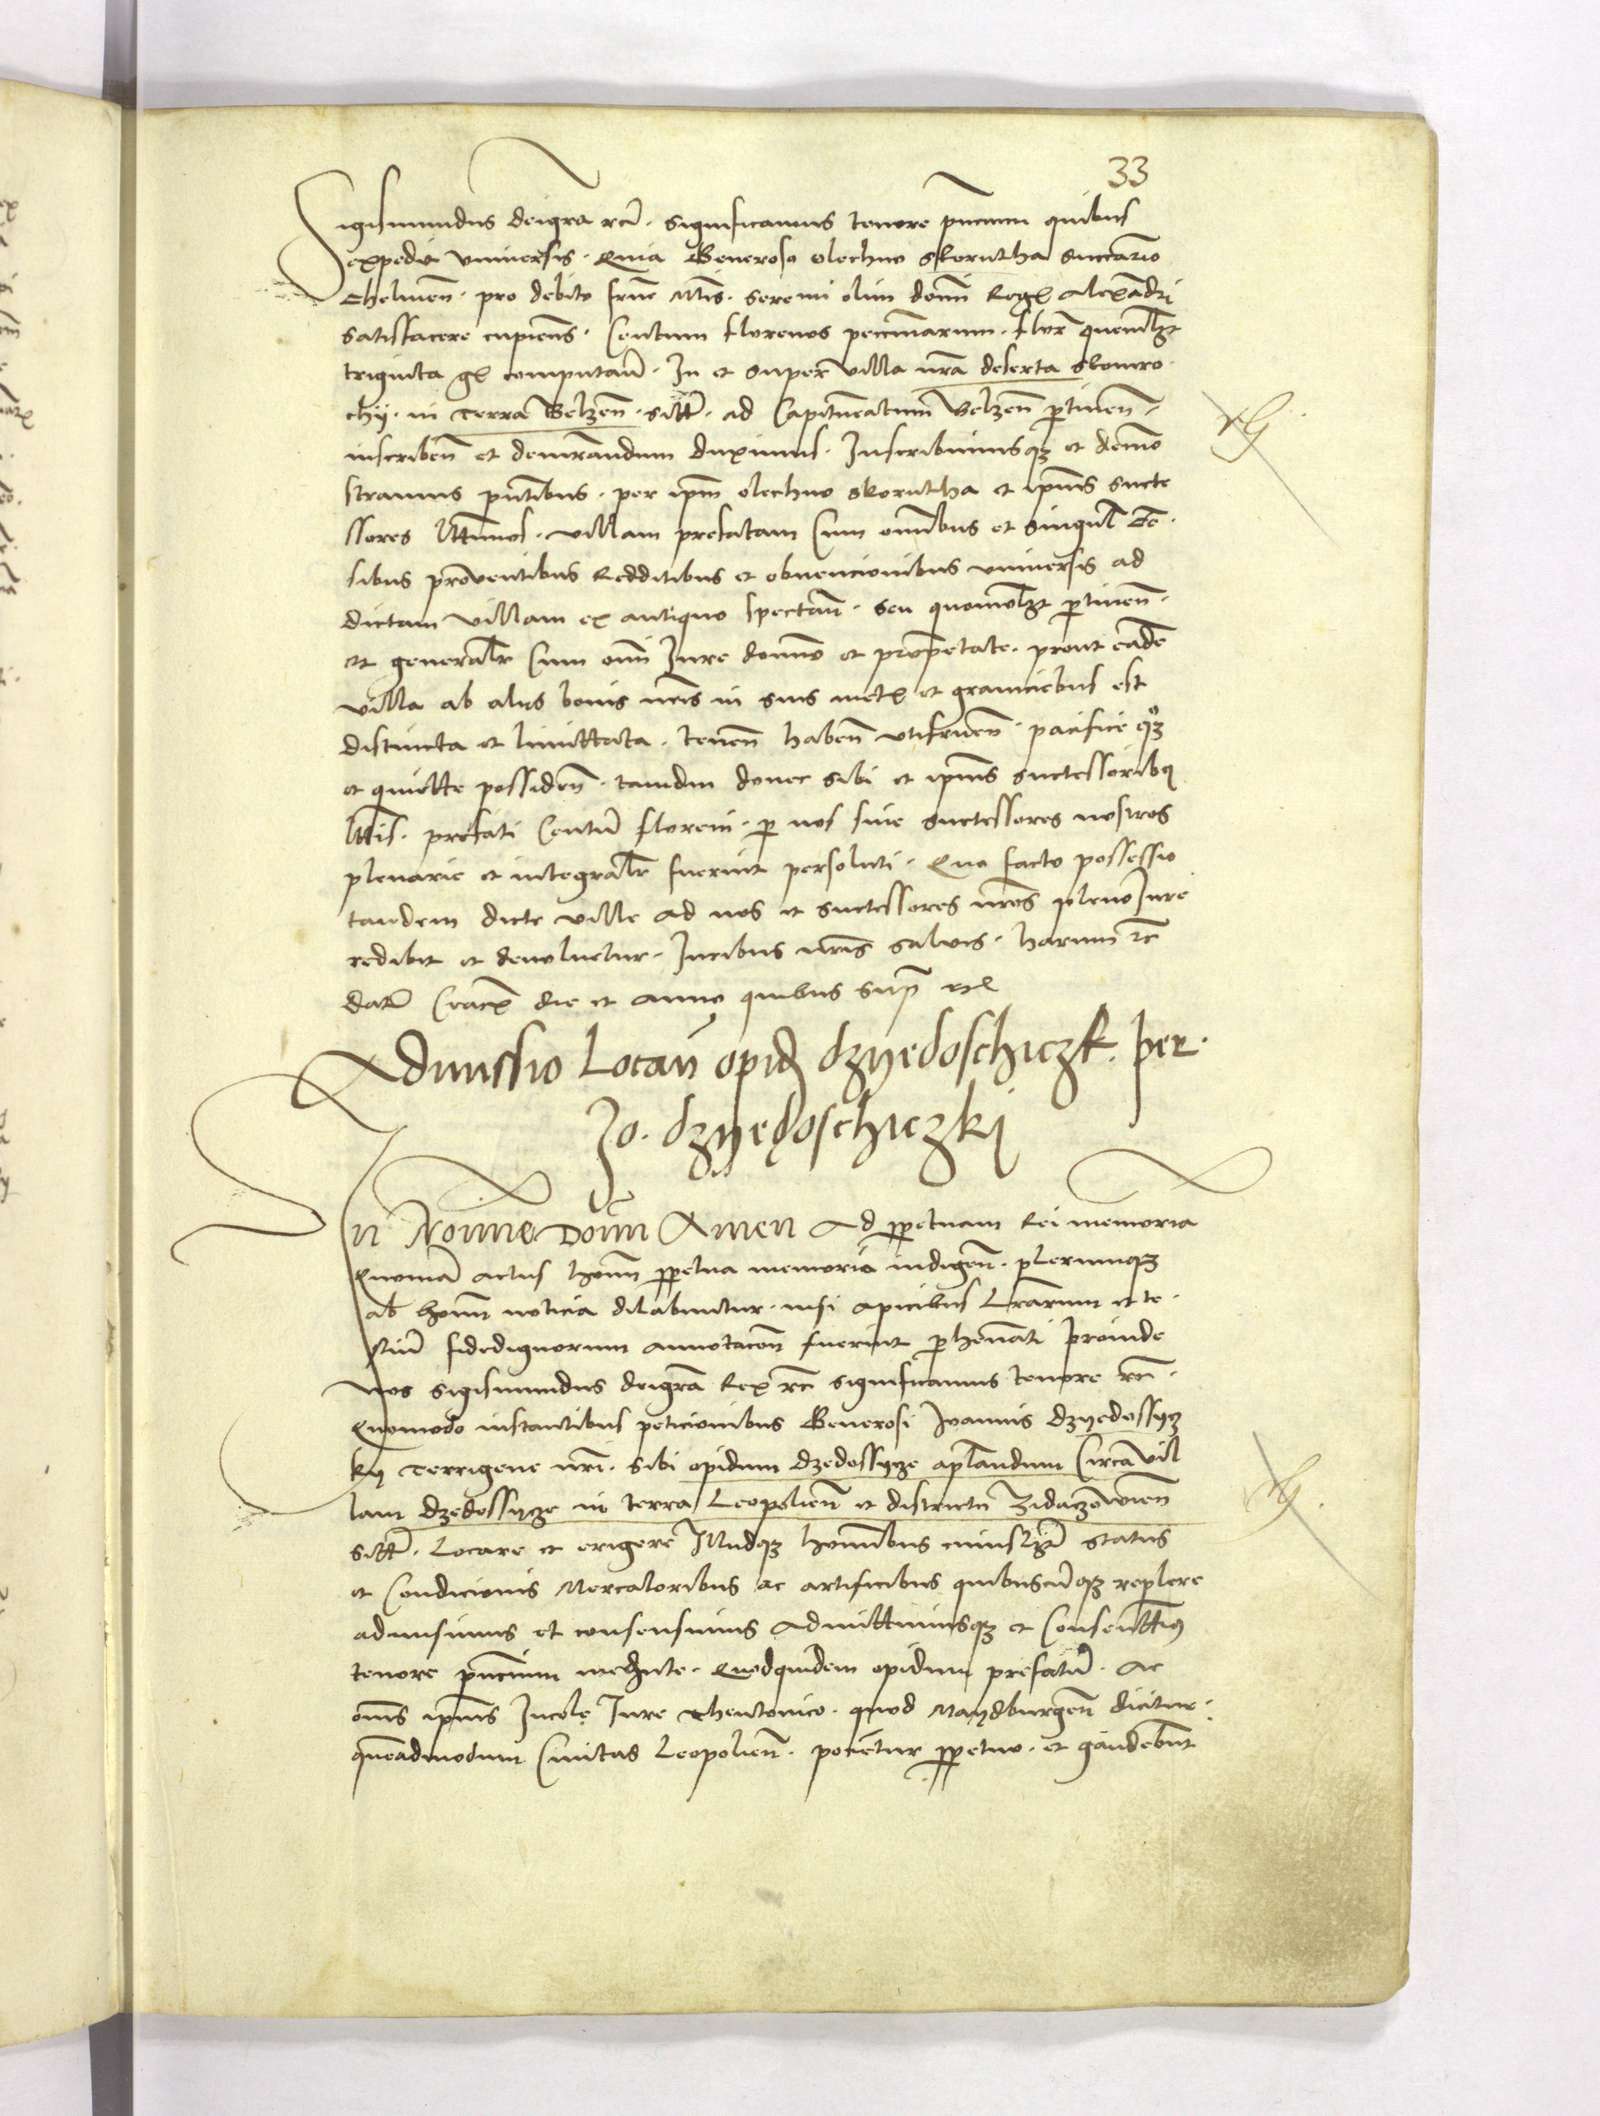 33
Sigismundus deigra rcz. significamus tenore pncium quibus
expedit vniuersis. Quia Generoso olechno skorutha succario
Chelmen. pro debito frne Mtis. sereni olim domi Regs Alexadri
satisfacere cupiens. Centum florenos pecuniarum. flor quemlzt
triginta gs computan. In et super villa nra deserta sloniro
chy. in terra Belzen. sitt. ad Capitneatum Belzen ptinen.
inscriben et demrandum duximus. Inscribimusqz et demo
stramus pntibus. per ipm olechno skorutha et ipius succe
ssores lttimos. villam prefatam Cum omnibus et singul cen
sibus prouentibus Redditibus et obuencionibus vniuersis ad
dictam villam ex antiquo spectan. seu quomolzt ptinen.
et generalr Cum omi Iure domio et proprietate. prout eade
villa ab aliis bonis nris in suis mets et graniciebus est
distincta et limittata. tenen haben vtifruen. pacifice qz
et quiette possiden. tamdiu donec sibi et ipius successoribus
lttis. prefati Centum floreni. p nos siue successores nostros
plenarie et integralr fuerint persoluti. Quo facto possessio
tandem dicte ville ad nos et successores nros pleno Iure
redibit et deuoluetur. Iuribus nris saluis. harum rc
datum Crac die et anno quibus supra rel
Admissio Locan opid dzyedoschiczk. per.
Jo. dzyedoschiczki
In Nomine Domi Amen Ad ppetuam Rei memoria
Quonia actus homi ppetua memoria indigen. plerumqz
ab homi noticia dilabuntur. nisi apicibus Lrarum et te
stiu fidedignorum annotacon fuerint phennati proinde
Nos sigismundus deigra Rex rc significamus tenore rc.
Quomodo instantibus peticionibus Generosi Ioannis dzyedossycz
ky terrigene nri. sibi opidum dzedossycze aplandum Circa vil
lam dzedossycze in terra Leopolien et districtu zidaczowien
sitt. Locare et erigere Illudqz homibus cuiuslzt status
et Condicionis Mercatoribus ac artificibus quibuscumqz replere
admisimus et consensimus Admittimusqz et Consenttimus
tenore pncium medinte. Quodquidem opidum prefatu. Ac
oms ipius Incole Iure theutonico. quod Maydburgen dicitur.
queadmodum Ciuitas Leopolien. pocietur ppetuo. et gaudebunt